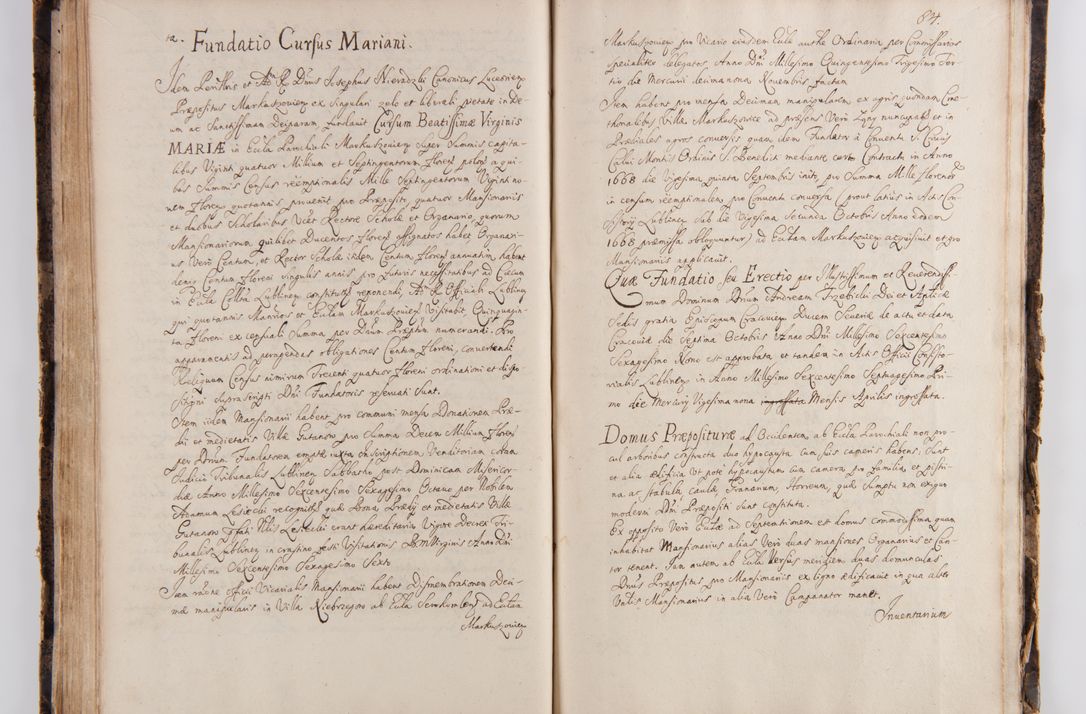 Fundatio Cursus Mariani.
Idem Perillris et Adm R. Dnus Josephus Nieradzki Canonicus Luceorien
Præpositus Markuszovien ex singulari zelo et liberali pietate in De-
um ac Sanctissimam Deiparam fundavit Cursum Beatissimæ Virginis
MARIÆ in Eccla Parochiali Markuszovien super Summis capita-
libus Viginti quatuor Millium et Septingentorum Floren polon a qui-
bus Summis Census reemptionalis Mille Septingentorum Viginti no-
vem Floren quotannis provenit pro Præposito, quatuor Mansionariis
et duobus Scholaribus Vice Rectore Scholæ et Organario, quorum
Mansionariorum quilibet Ducentos Floren assignatos habet Organari-
us Vero Centum, et Rector Scholæ itidem Centum Floren annuatim, habent
denique Centum Floreni singulis annis, pro futuris necessitatibus ad Cistam
in Eccla Collta Lublinen constitutam reponendi, Ad R. Officiali Lublinen
qui quotannis Mansrios et Ecclam Markuszovien Visitabit Quinquagin-
ta Floren ex censuali Summa per Dnum Præptum numerandi. Pro
apparamentis ad peragendas obligationes Centum Floreni, convertendi
Reliquum Census nimirum Trecenti quatuor Floreni ordinationi et dispo-
sitioni suprascripti Dni Fundatoris reservati sunt.
Item iidem Mansionarii habent pro communi mensa Donationem Præ-
dii et medietatis Villæ Gutanow pro Summa Decem Millium Floren
per Dnum Fundatorem emptæ iuxta Inscriptionem Venditoriam coram
Judicio Tribunalis Lublinen Sabbatho post Dominicam Misericor-
diæ Anno Millesimo Sexcentesimo Sexagesimo Octavo per Nobilem
Adamum Lesiecki recognitam quæ Bona Prædii et medietatis Villæ
Gutanow Præfati Nblis Lesiecki erant hæreditaria Vigore Decreti Tri-
bunalis Lublinen in crastino festi Visitationis B. M. Virginis Anno Dni
Millesimo Sexcentesimo Sexagesimo Sexto
Item raone officii Vicarialis Mansionarii habent dismembrationem Deci-
mæ manipularis in Villa Niebrzegow ab Eccla Serokomlen ad Ecclam
Markuszovien
84.
Markuszovien pro Vicario eiusdem Ecclæ authte Ordinaria per Commissarios
specialiter delegatos, Anno Dni Millesimo Quingentesimo Trigesimo Ter-
tio die Mercurii decimanona Novembris factam
Item habent pro mensa Decimam manipularem ex agris quondam Cme-
thonalibus Villæ Markuszowice ad præsens Vero Łany nuncupatis et in
Prædiales agros conversis quam idem Fundator à Conventu S. Crucis
Calvi Montis Ordinis S. Benedicti mediante certo Contractu in Anno
1668 die Vigesima quinta Septembris inito, pro Summa Mille florenorum
in censum reemptionalem pro Conventu conversa (prout latius in Actis Con-
sistorii Lublinen sub die Vigesima Secunda Octobris Anno eodem
1668 præmissa obloquuntur) ad Ecclam Markuszovien acquisivit et pro
Mansionariis applicavit.
Quæ Fundatio seu Erectio per Illustrissimum et Reverendissi-
mum Dominum Dnum Andream Trzebicki Dei et Aplicæ
Sedis gratia Episcopum Cracovien Ducem Severiæ de actu et data
Cracoviæ die Septima Octobris Anno Dni Millesimo Sexcentesimo
Sexagesimo Nono est approbata, et tandem in Actis Officii Consisto-
rialis Lublinen in Anno Millesimo Sexcentesimo Septuagesimo Pri-
mo die Mercurii Vigesima nona ingressata Mensis Aprilis ingressata.
Domus Præpositure ad Occidentem, ab Eccla Parochiali non pro-
cul arboribus consructa duo hypocausta cum suis cameris habens, Sunt
et alia ædificia Ut pote hypocaustum cum camera pro familia, et pisti-
na, ac Stabula, caulæ, Granarium, Horreum, quæ sumptu non exiguo
moderni Dni Præpositi sunt constituta.
Ex opposito Vero Ecclæ ad Septentrionem est domus commodissima quam
inhabitat Mansionarius alias Vero duas mansiones Organarius et Can-
tor tenent. Iam autem ab Eccla Versus meridiem duas domunculas
Dnus Præpositus pro Mansionariis ex ligno ædificavit in qua altera
Unus Mansionarius in alia Vero Campanator manet.
Inventarium